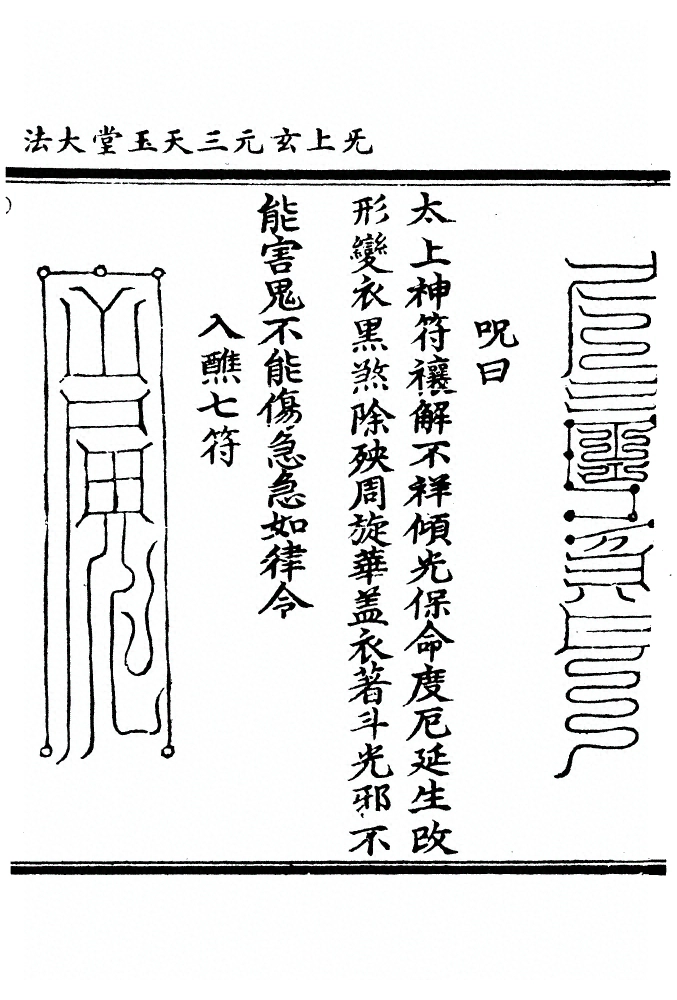 法大堂玉天三元玄上旡
呪曰
太上神符禳解不祥傾光保命度厄延生改
形變衣黑煞除殃周旋華盖衣著斗光邪不
能害鬼不能傷急急如律令
入醮七符